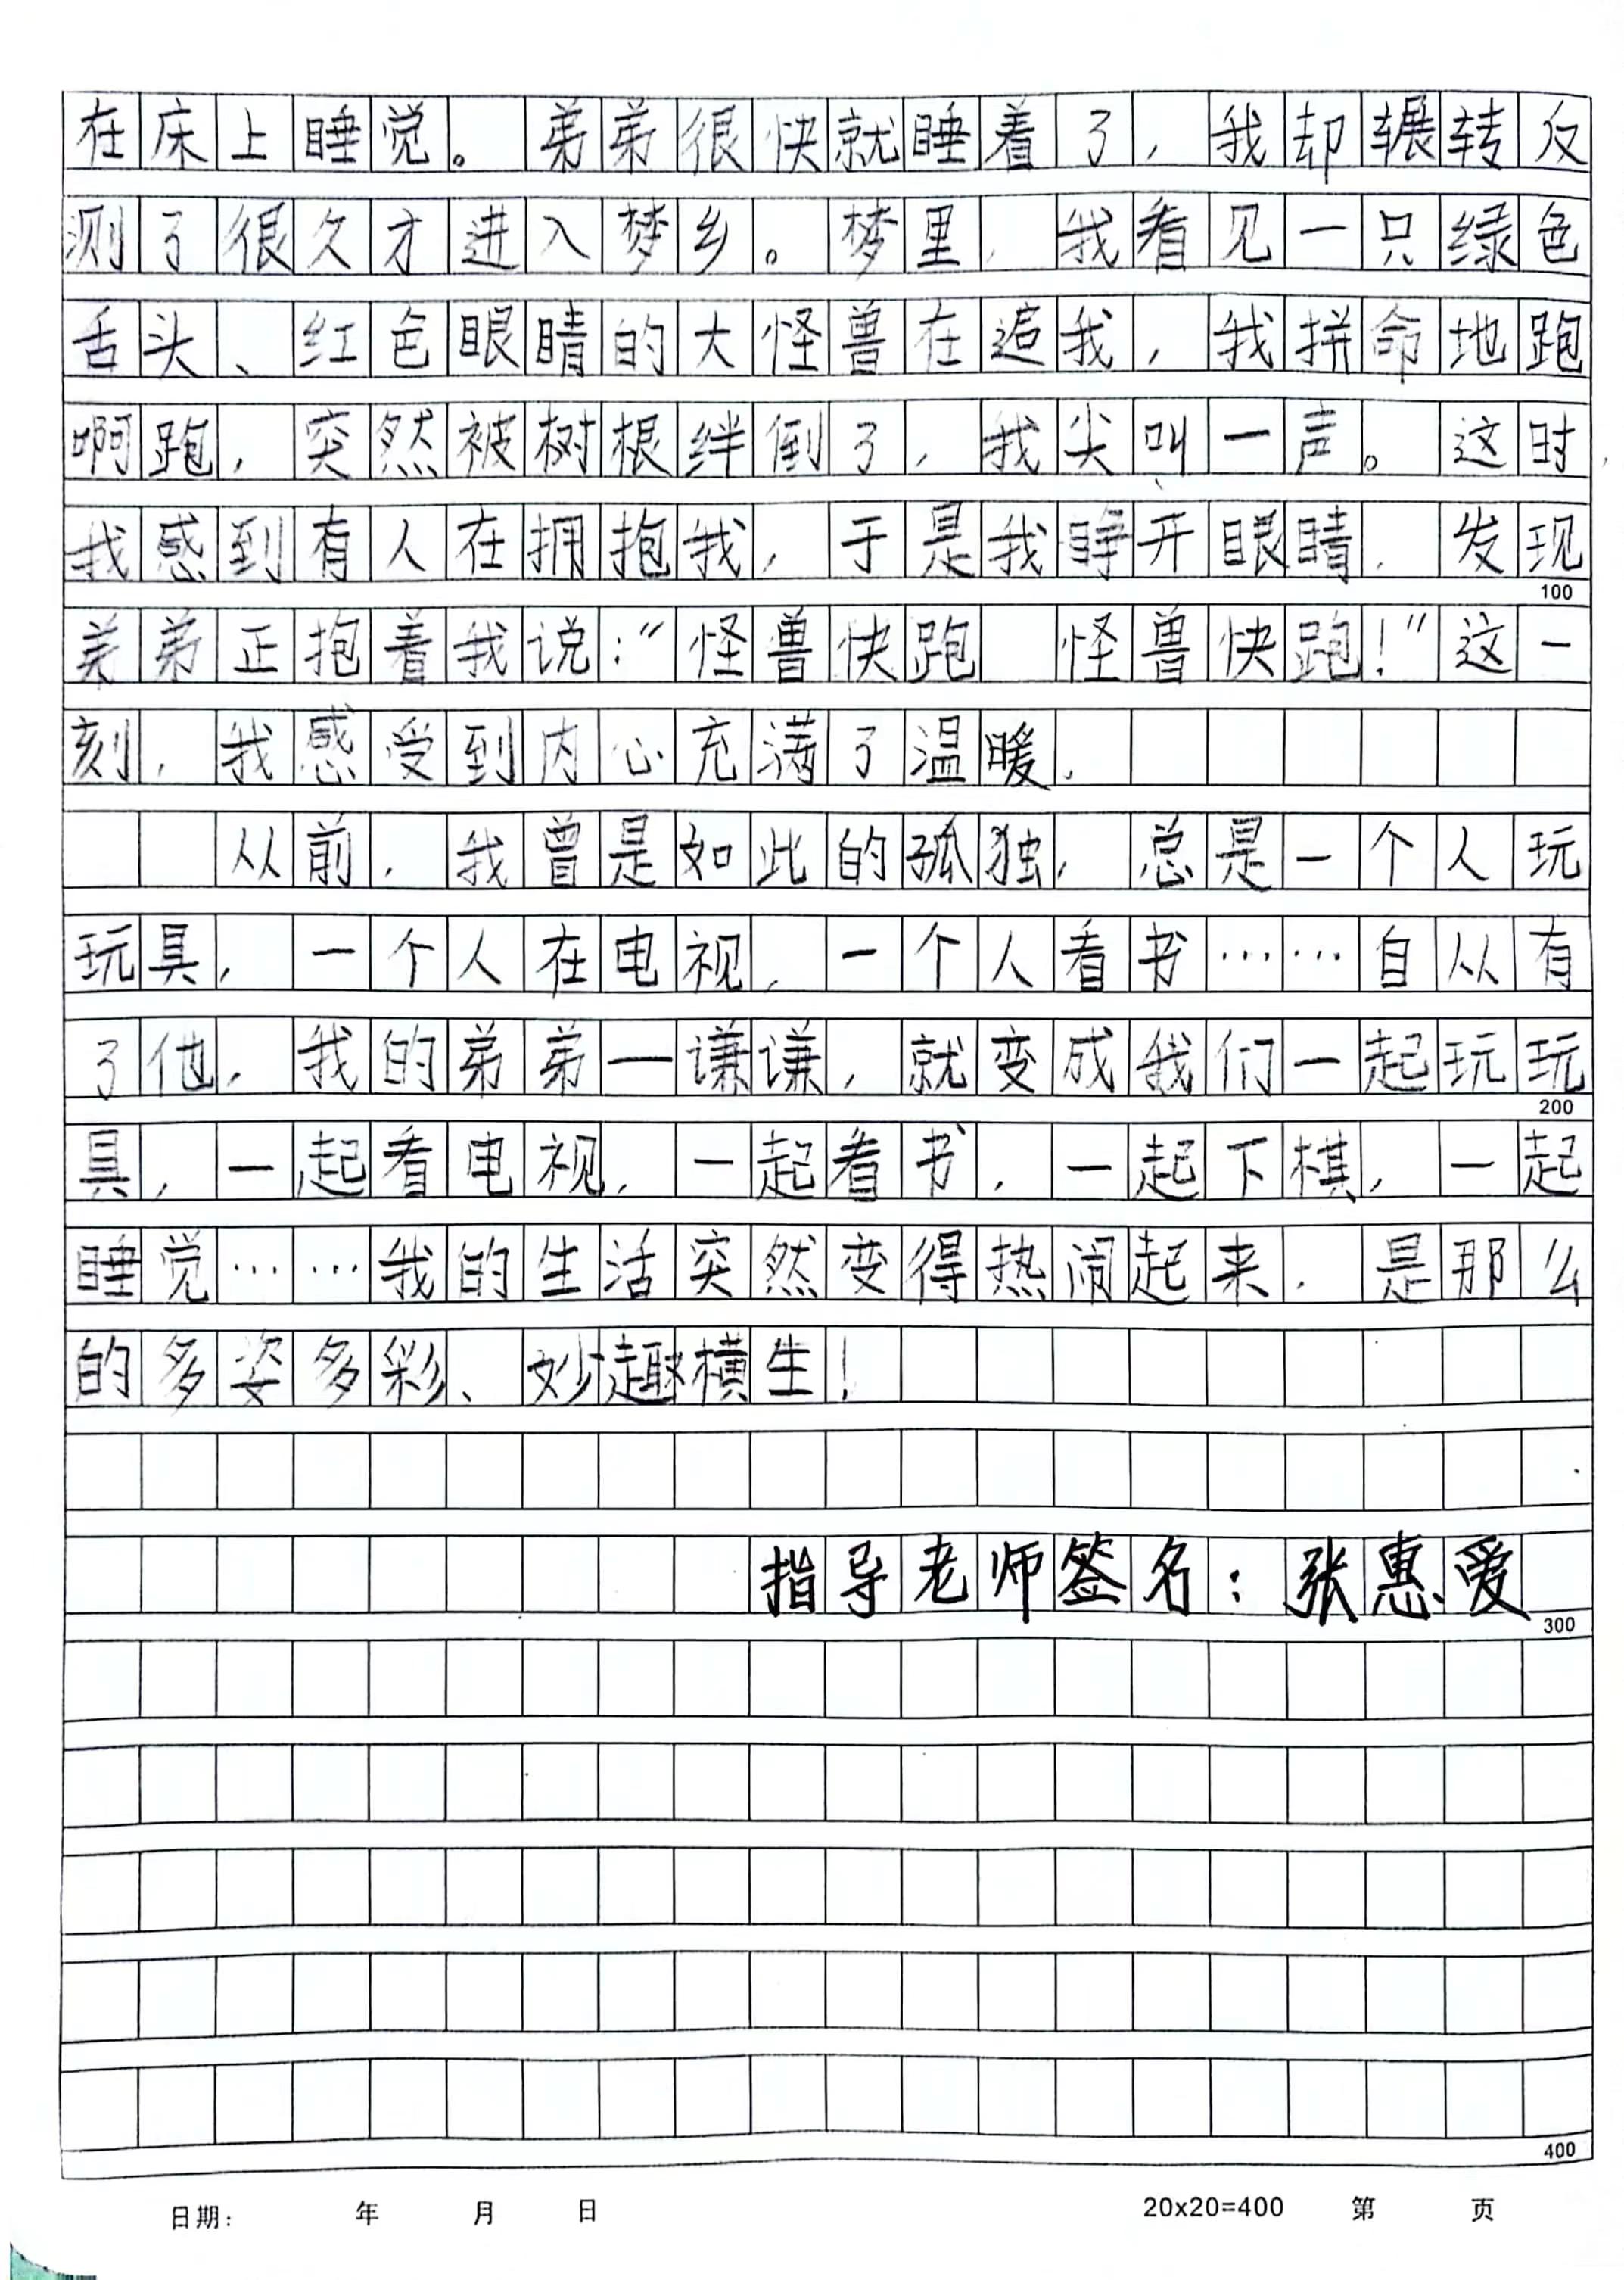 在床上睡觉。弟弟很快就睡着了，我却辗转反
测了很久才进入梦乡。梦里，我看见一只绿色
舌头、红色眼睛的大怪兽在追我，我拼命地跑
啊跑，突然被树根绊倒了，我尖叫一声。这时，
我感到有人在拥抱我，于是我睁开眼睛，发现
弟弟正抱着我说：“怪兽快跑 怪兽快跑！”这一
刻，我感受到内心充满了温暖.
从前，我曾是如此的孤独，总是一个人玩
玩具，一个人在电视，一个人看书……自从有
了他，我的弟弟—谦谦，就变成我们一起玩玩
100
200
具，一起看电视，一起看书，一起下棋，一起
睡觉……我的生活突然变得热闹起来，是那么
的多姿多彩、妙趣横生！
指导老师签名：张惠爱
300
400
日期： 年 月 日 20x20=400 第 页